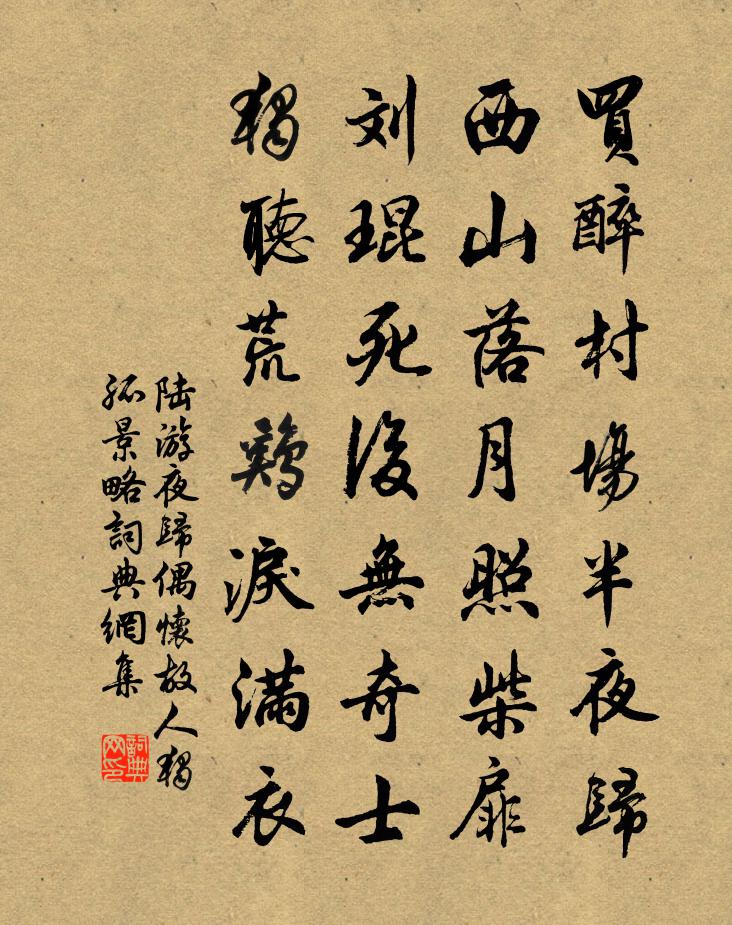 買醉村場半夜歸
西山落月照柴扉
刘琨死後無奇士
獨聽荒鷄淚滿衣
陆游夜歸偶懷故人獨
孤景略詞典網集
詞典网印